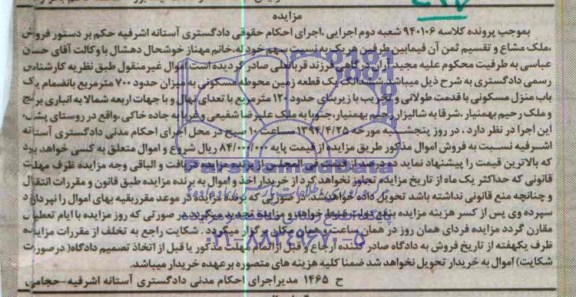 مزایده
بموجب پرونده کلاسه ۹۴۰۱۰۶ شعبه دوم اجرایی ،اجرای احکام حقوقی دادگستری آستانه اشرفیه حکم بر دستور فروش
،ملک مشاع و تقسیم ثمن آن فیمابین طرفین هر یک به نسبت سهم خود له خانم مهناز خوشحال دهشال با وکالت آقای حسن
عباسی به طرفیت محکوم علیه مجید فرزند قربانعلی صادر گردیده است اموال غیر منقول طبق نظریه کارشناس
رسمی دادگستری به شرح ذیل میباشد یک قطعه زمین محوطه مسکونی به میزان حدود ۷۰۰ مترمربع بانضمام یک
باب منزل مسکونی با قدمت طولانی و تخریب با زیربنای حدود ۱۲۰ مترمربع با جهات اربعه شمالا به انباری برنج
و ملک رحیم بهمنیار ،شرقا به شالیزار رحیم بهمنیار،جنوبا به ملک علیرضا شفیعی و غربا به جاده خاکی ،واقع در روستای پشل
این اجرا در نظر دارد ، در روز پنجشنبه مورخه ۱۳۹۴/۴/۲۵ ساعت ۱۰ صبح در محل اجرای احکام مدنی دادگستری آستانه
اشرفیه نسبت به فروش اموال مذکور طریق مزایده از قیمت پایه ۸۴/۰۰۰/۰۰۰ ریال شروع و اموال متعلق به کسی خواهد بود
که بالاترین قیمت را پیشنهاد نماید ده درصد از قیمت فی المجلس از برنده مزایده دریافت و الباقی وجه مزایده ظرف مهلت
قانونی که حداکثر یک ماه از تاریخ مزایده تجاوز نخواهد کرد از خریدار اخذ و اموال به برنده مزایده طبق قانون و مقررات انتقال
و چنانچه منع قانونی نداشته باشد تحویل داده خواهد شد در صورتی که برنده مزایده در موعد مقرر بقیه بهای اموال را نپردازد
سپرده وی پس از کسر هزینه مزایده بنفع دولت ضبط خواهد و مزایده تجدید میگردد در صورتی که روز مزایده با ایام تعطیل
مقارن گردد مزایده فردای همان روز در همان ساعت و همان مکان برگزار میگردد . شکایت راجع به تخلف از مقررات مزایده
ظرف یکهفته از تاریخ فروش به دادگاه صادر کننده و قبل از انقضا مهلت مذکور یا قبل از اتخاذ تصمیم دادگاه( درصورت
شکایت) اموال به خریدار تحویل نخواهد شد ضمنا کلیه هزینه های متصوره بر عهده خریدار میباشد.
ح ۱۴۶۵ مدیر اجرای احکام مدنی دادگستری آستانه اشرفیه-حجامی